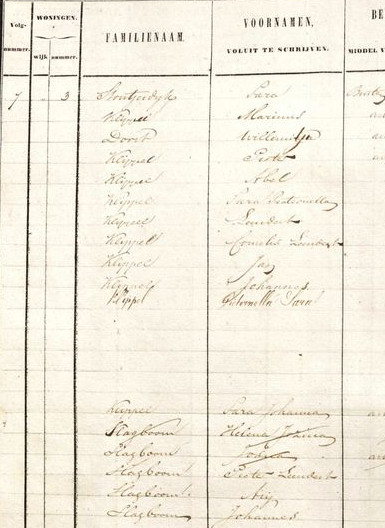 Volg-
nummer.
WONINGEN.
wijk
nummer.
FAMILIENAAM.
VOORNAMEN,
VOLUIT TE SCHRIJVEN.
BE
MIDDEL V
7 3 Sara
Kleppel Marinus
Dorst Willemijn
Kleppel
Kleppel Abel
Kleppel Sara Pietronella
Kleppel Leendert
Kleppel Cornelis Leendert
Kleppel Jan
Kleppel Johannes
Kleppel Pieternella Sara
Kleppel Sara Johanna
Slagboom Helena
Slagboom
Slagboom Leendert
Slagboom Arij
Slagboom Johannes